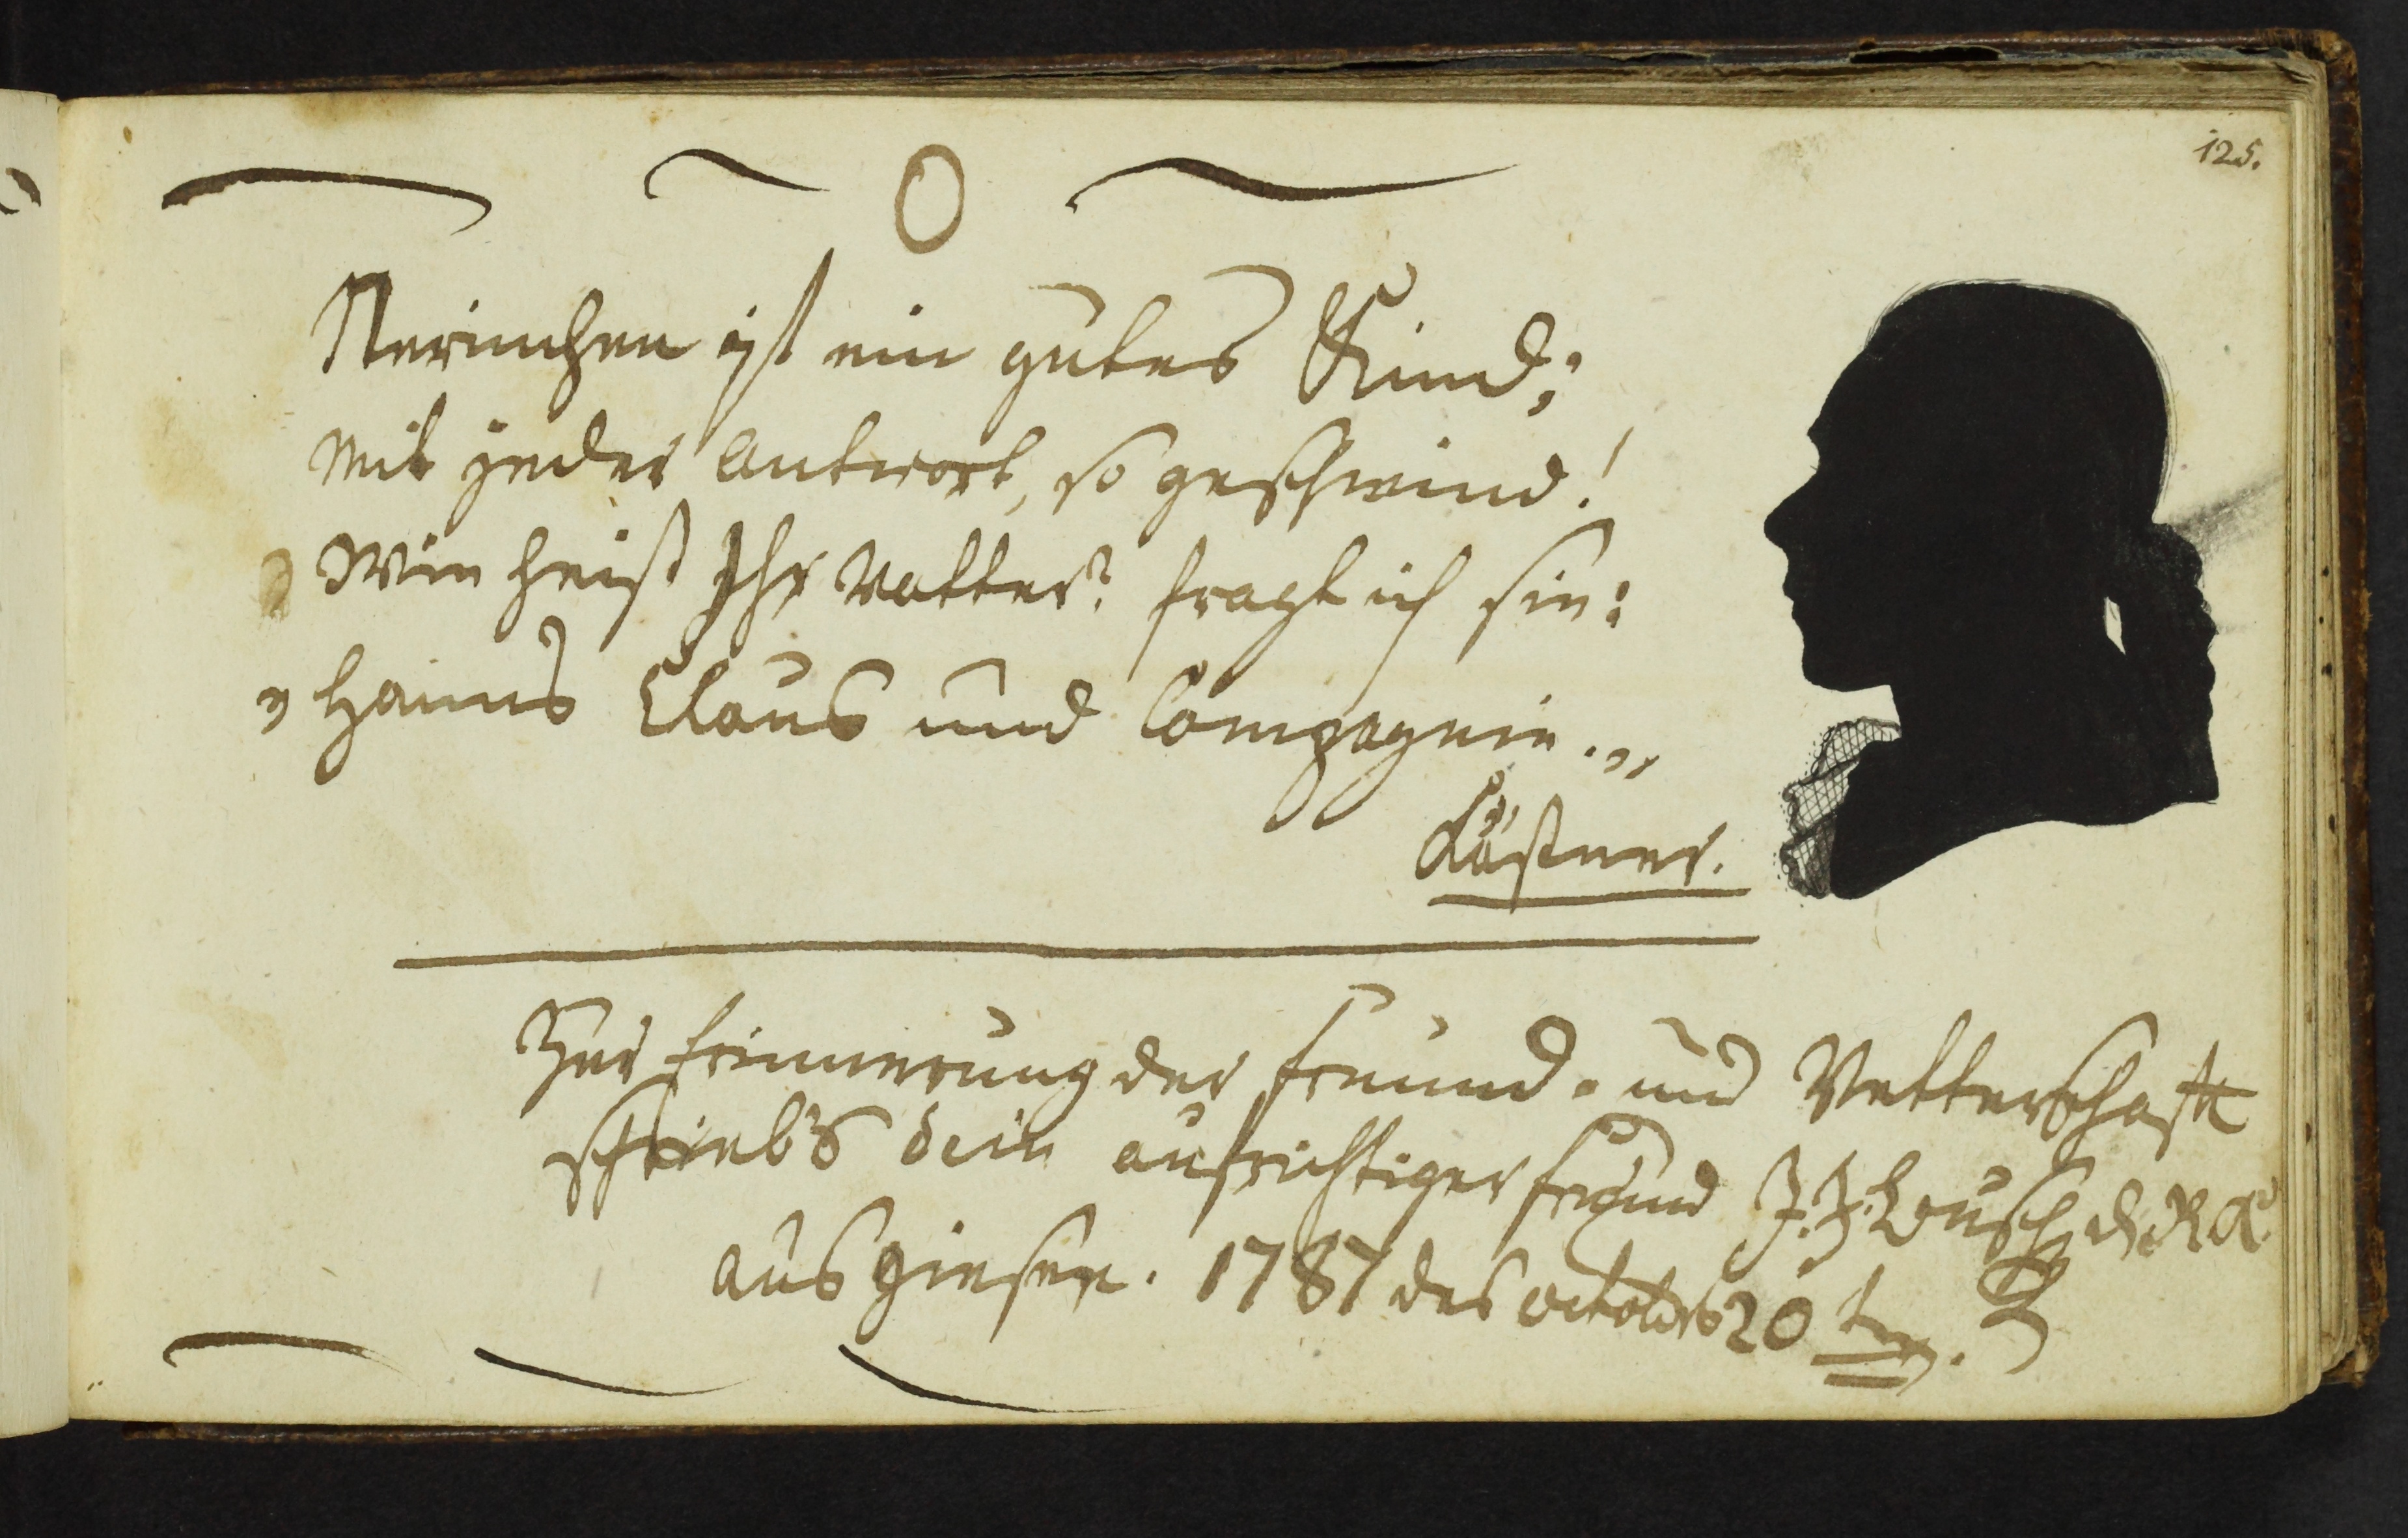 125.
O
Nerinchen ist ein gutes Kind;
Mit jeder Antwort, so geschwind!
„ Wie heist Ihr Vatter? fragt ich sie:
„ Hanns Claus und Compagnie. „
Kästner.
Zur Erinnerung der Freund- und Vetterschaft
schrieb's dein aufrichtiger Freund J. J. Busch, d. R. C.
aus Giesen. 1787 des Octobrs 20 ten.